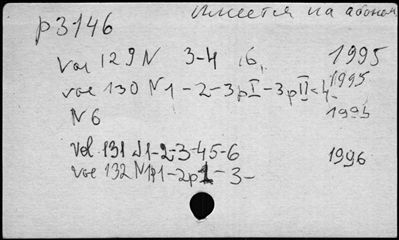 Имеется на абонем
р3146
vol 129 N 3-4 , 6, 1995
vol 130 N1-2-3pI-3pII-4- 1995
N6 1995
vol 131 N1-2-3-45-6 1996
vol 132 N1p1-2p1-3-